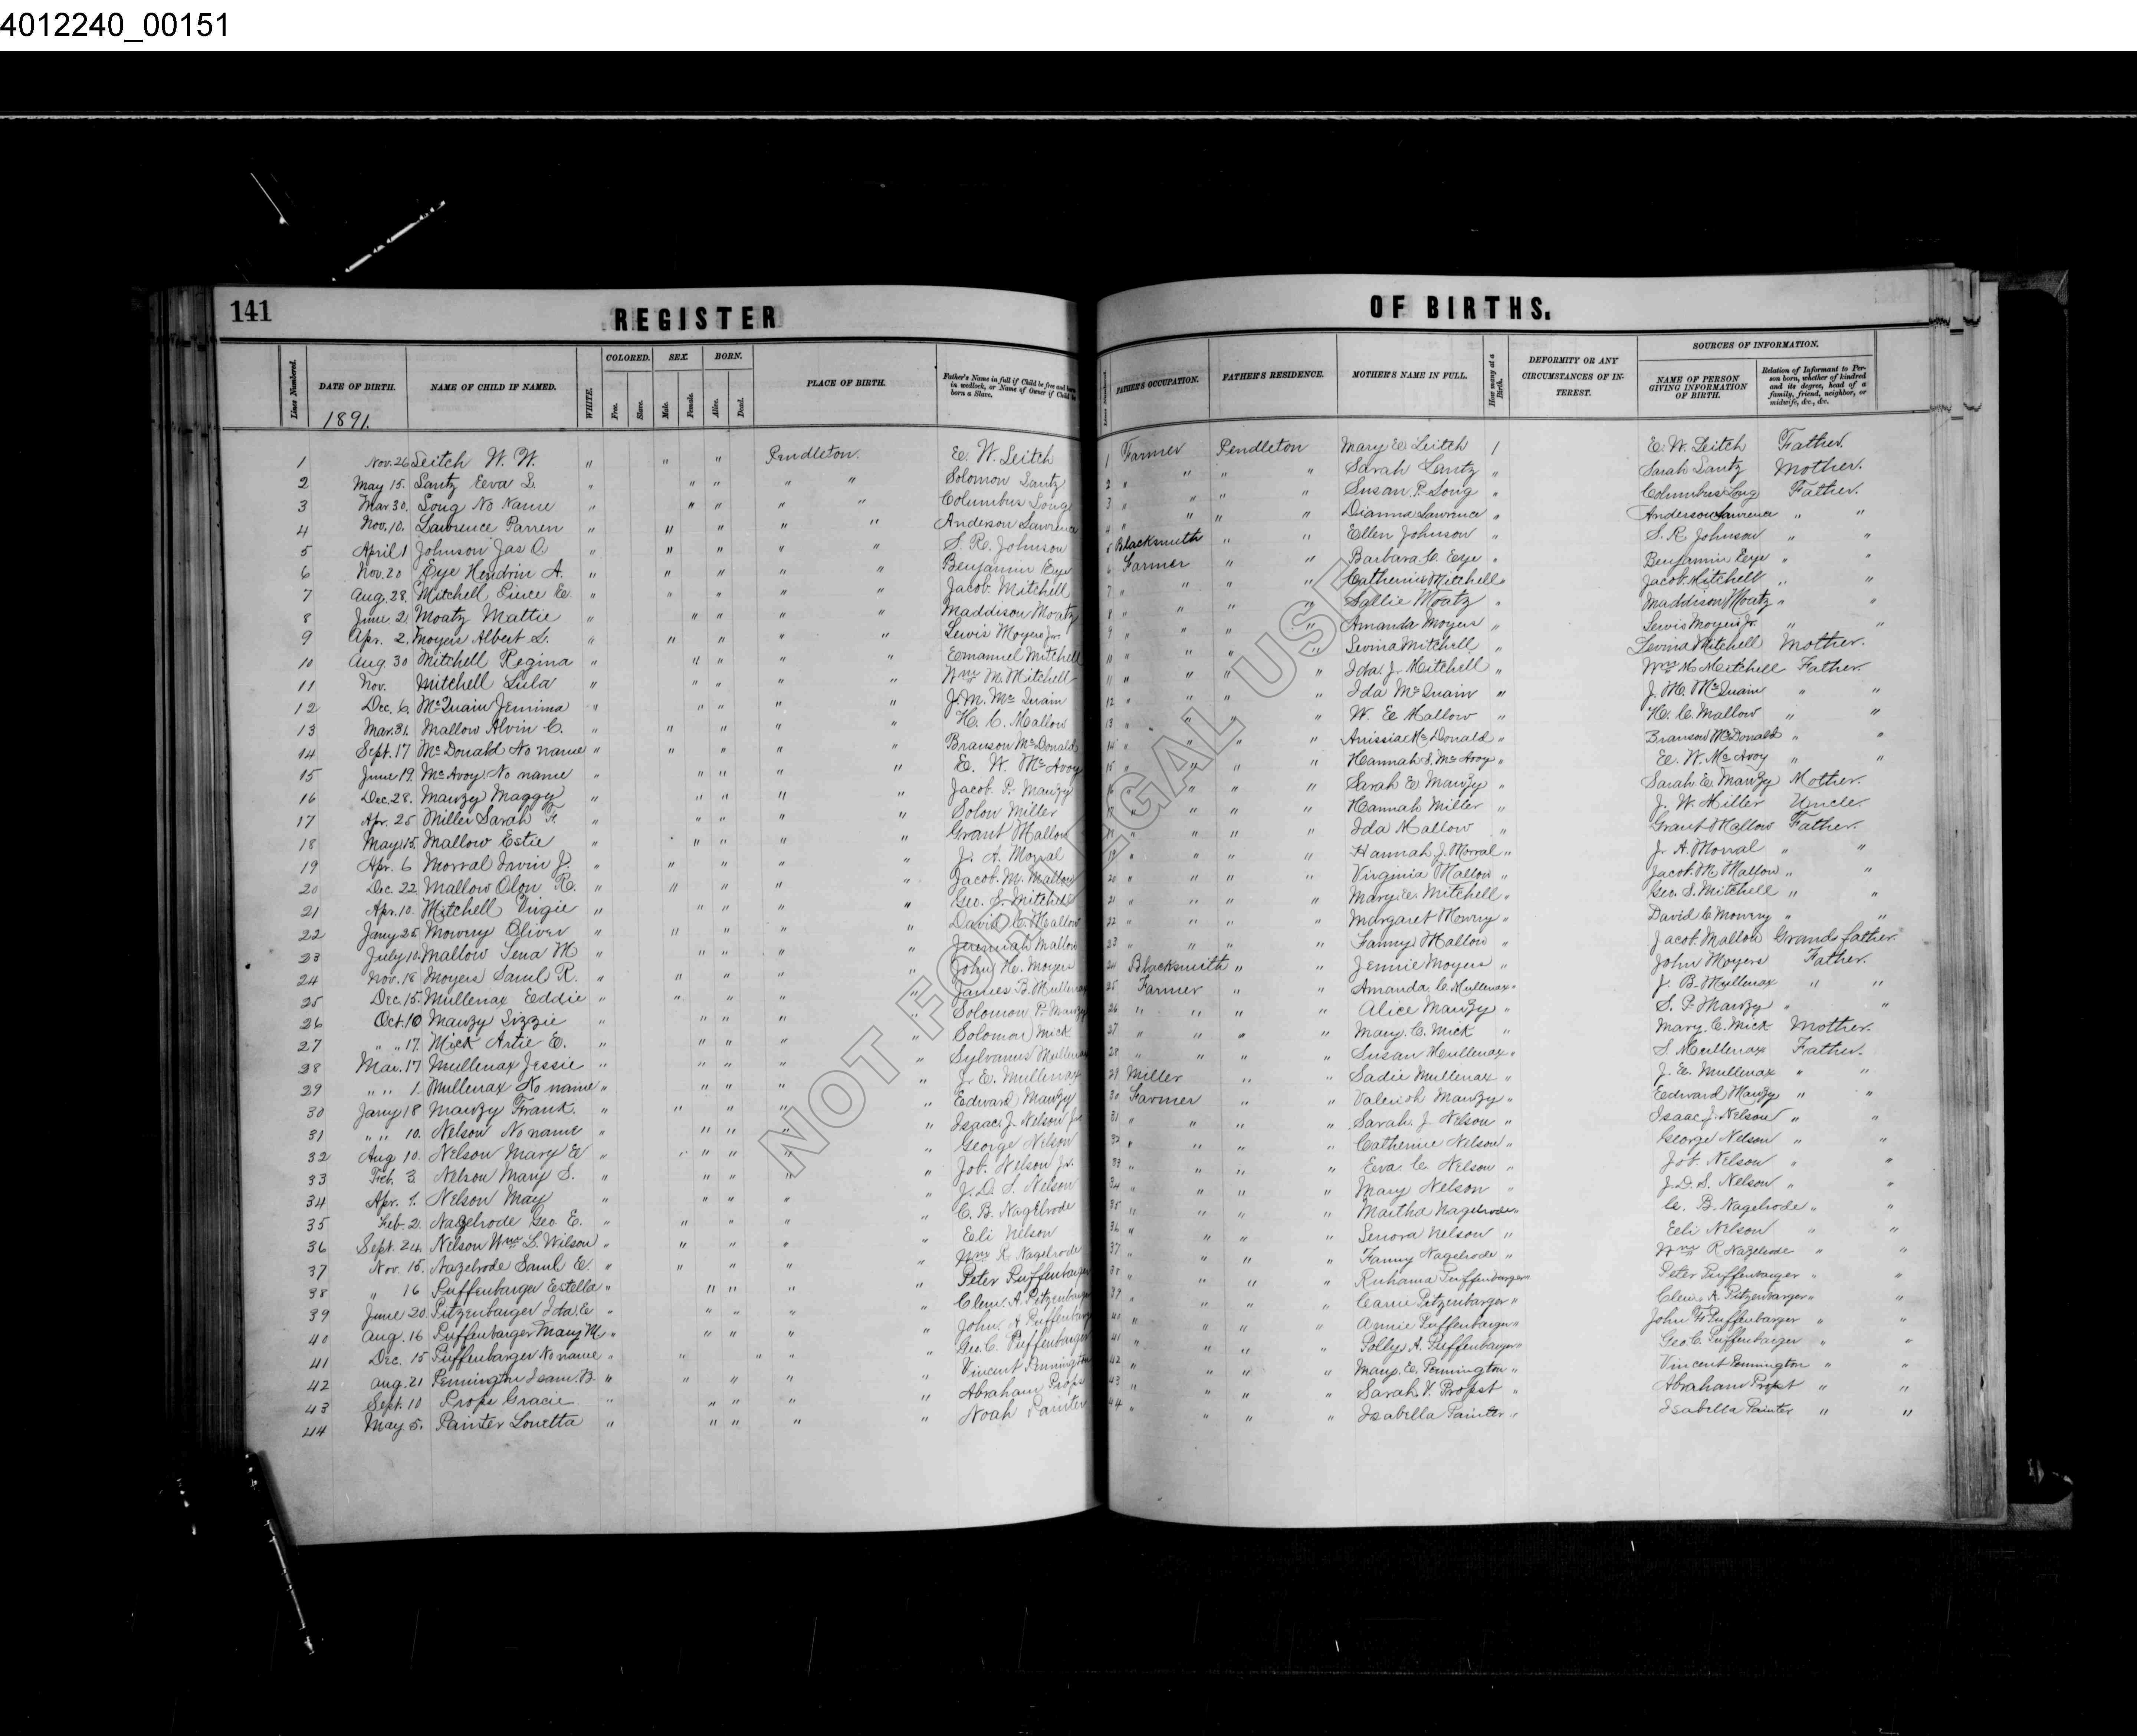 4012240_00151
141 REGISTER OF BIRTHS.
Lines Numbered. DATE OF BIRTH. NAME OF CHILD IF NAMED. WHITE. COLORED. Free. Slave. SEX. Male. Female. BORN. Alive. Dead. PLACE OF BIRTH. Father's Name in full if Child be free and born in wedlock, or Name of Owner if Child be born a Slave. FATHER'S OCCUPATION. FATHER'S RESIDENCE. MOTHER'S NAME IN FULL. How many at a Birth. DEFORMITY OR ANY CIRCUMSTANCES OF INTEREST. SOURCES OF INFORMATION. NAME OF PERSON GIVING INFORMATION OF BIRTH. Relation of Informant to Person born, whether of kindred and its degree, head of a family, friend, neighbor, or midwife, &c., &c.
1891.
1 Nov. 26 Leitch W. W. " " " Pendleton. E. W. Leitch 1 Farmer Pendleton Mary E. Leitch 1 E. W. Leitch Father.
2 May 15. Lantz Eeva L. " " " " " Solomon Lantz 2 " " " " Sarah Lantz " Sarah Lantz Mother.
3 Mar. 30. Long No Name " " " " " Columbus Long 3 " " " " Susan P. Long " Columbus Long Father.
4 Nov. 10. Lawrence Parren " " " " " Anderson Lawrence 4 " " " " Dianna Lawrence " Anderson Lawrence " "
5 April 1 Johnson Jas O. " " " " " S. R. Johnson 5 Blacksmith " " Ellen Johnson " S. R. Johnson " "
6 Nov. 20 Eye Hendrin A. " " " " " Benjamin Eye 6 Farmer " " Barbara C. Eye " Benjamin Eye " "
7 Aug. 28. Mitchell E. " " " " " Jacob Mitchell 7 " " " " Catherine Mitchell " Jacob Mitchell " "
8 June 2 Moatz Mattie " " " " " Maddison Moatz 8 " " " " Sallie Moatz " Maddison Moatz " "
9 Apr. 2. Moyers Albert L. " " " " " Lewis Moyers Jr. 9 " " " " Amanda Moyers " Lewis Moyers Jr. " "
10 Aug. 30 Mitchell Regina " " " " " Emanuel Mitchell 10 " " " " Levina Mitchell " Levina Mitchell Mother.
11 Nov. Mitchell Lula " " " " " Wm M. Mitchell 11 " " " " Ida J. Mitchell " Wm M Mitchell Father.
12 Dec. 6. McQuain Jemima " " " " " J. M. McQuain 12 " " " " Ida McQuain " J. M. McQuain " "
13 Mar. 31. Mallow Alvin C. " " " " " H. C. Mallow 13 " " " " W. E Mallow " H. C. Mallow " "
14 Sept. 17 McDonald No name " " " " " Branson McDonald 14 " " " " McDonald " Branson McDonald " "
15 June 19. McAvoy No name " " " " " E. W. McAvoy 15 " " " " Hannah S. McAvoy " E. W. McAvoy " "
16 Dec. 28. Mauzy Maggy " " " " " Jacob P. Mauzy 16 " " " " Sarah E Mauzy " Sarah E. Mauzy Mother.
17 Apr. 25 Miller Sarah F. " " " " " Solon Miller 17 " " " " Hannah Miller " J. W. Miller Uncle
18 May 15. Mallow Estie " " " " " Grant Mallow 18 " " " " Ida Mallow " Grant Mallow Father.
19 Apr. 6 Morral Irvin J. " " " " " J. A. Morral 19 " " " " Hannah J. Morral " J. A. Morral " "
20 Dec. 22. Mallow Olon R. " " " " " Jacob M. Mallow 20 " " " " Virginia Mallow " Jacob M. Mallow " "
21 Apr. 10. Mitchell Virgie " " " " " Geo. S. Mitchell 21 " " " " Mary E. Mitchell " Geo. S. Mitchell " "
22 Jany 25 Mowery Oliver " " " " " David C. Mallow 22 " " " " Margaret Mowry " David C Mowery " "
23 July 10. Mallow Lena M " " " " " Jeremiah Mallow 23 " " " " Fanny Mallow " Jacob Mallow Grandsfather.
24 Nov. 18 Moyers Saml R. " " " " " John H. Moyers 24 Blacksmith " " Jennie Moyers " John Moyers Father.
25 Dec. 15. Mullenax Eddie " " " " " James B. Mullenax 25 Farmer " " Amanda C. Mullenax " J. B. Mullenax " "
26 Oct. 10 Mauzy Lizzie " " " " " Solomon P. Mauzy 26 " " " " Alice Mauzy " S. P. Mauzy " "
27 " " 17. Mick Artie E. " " " " " Solomon Mick 27 " " " " Mary C. Mick " Mary C. Mick Mother.
28 Mar. 17 Mullenax Jessie " " " " " Sylvanus Mullenax 28 " " " " Susan Mullenax " S. Mullenax Father.
29 " " 1. Mullenax No name " " " " " J. E. Mullenax 29 Miller " " Sadie Mullenax " J. E. Mullenax " "
30 Jany 18 Mauzy Frank. " " " " " Edward Mauzy 30 Farmer " " Mauzy " Edward Mauzy " "
31 " " 10. Nelson No name " " " " " Isaac J. Nelson 31 " " " " Sarah J Nelson " Isaac J. Nelson " "
32 Aug 10. Nelson Mary E " " " " " George Nelson 32 " " " " Catherine Nelson " George Nelson " "
33 Feb. 3. Nelson Mary S. " " " " " Job. Nelson Jr. 33 " " " " Eva C. Nelson " Job. Nelson " "
34 Apr. 1. Nelson May " " " " " J. D. S. Nelson 34 " " " " Mary Nelson " J. D. S. Nelson " "
35 Feb. 2. Nagelrode Geo E. " " " " " C. B. Nagelrode 35 " " " " Martha Nagelrode " C. B. Nagelrode " "
36 Sept. 24. Nelson Wm L. Wilson " " " " " Eli Nelson 36 " " " " Lenora Nelson " Eli Nelson " "
37 Nov. 15. Nagelrode Saml E. " " " " " Wm R. Nagelrode 37 " " " " Fanny Nagelrode " Wm R Nagelrode " "
38 " 16 Puffenbarger Estella " " " " " Peter Puffenbarger 38 " " " " Ruhama Puffenbarger " Peter Puffenbarger " "
39 June 20. Pitzenbarger Ida E " " " " " Clem. A. Pitzenbarger 39 " " " " Carrie Pitzenbarger " Clem. A. Pitzenbarger " "
40 Aug. 16 Puffenbarger Mary M. " " " " " John. Puffenbarger 40 " " " " Annie Puffenbarger " John Puffenbarger " "
41 Dec. 15 Puffenbarger No name " " " " " Geo. C. Puffenbarger 41 " " " " Polly A. Puffenbarger " Geo. C. Puffenbarger " "
42 Aug. 21 Pennington B. " " " " " Vincent Pennington 42 " " " " Mary E. Pennington " Vincent Pennington " "
43 Sept. 10 Props Gracie " " " " " Abraham Props 43 " " " " Sarah V. Propst " Abraham Propst " "
44 May 5. Painter Lonetta " " " " " Noah Painter 44 " " " " Isabella Painter " Isabella Painter " "
NOT FOR LEGAL USE